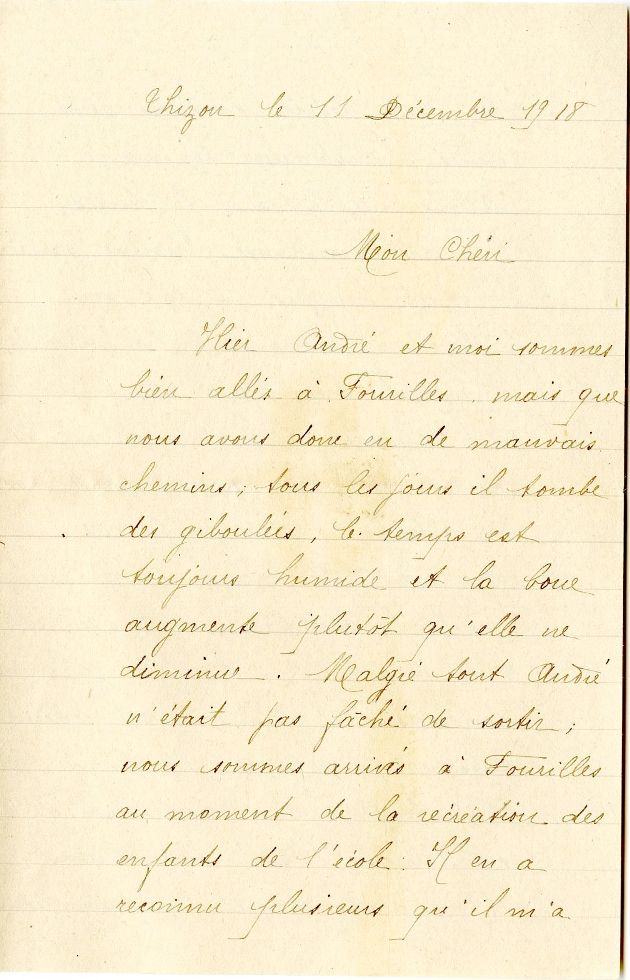 Thizon le 11 Décembre 1918
Mon Chéri
Hier André et moi sommes
bien allés à Fourilles, mais que
nous avons donc eu de mauvais
chemins; tous les jours il tombe
des giboulées, le temps est
toujours humide et la boue
augmente plutôt qu'elle ne
diminue. Malgré tout André
n'était pas fâché de sortir;
nous sommes arrivés à Fourilles
au moment de la récréation des
enfants de l'école. Il en a
reconnu plusieurs qu'il m'a